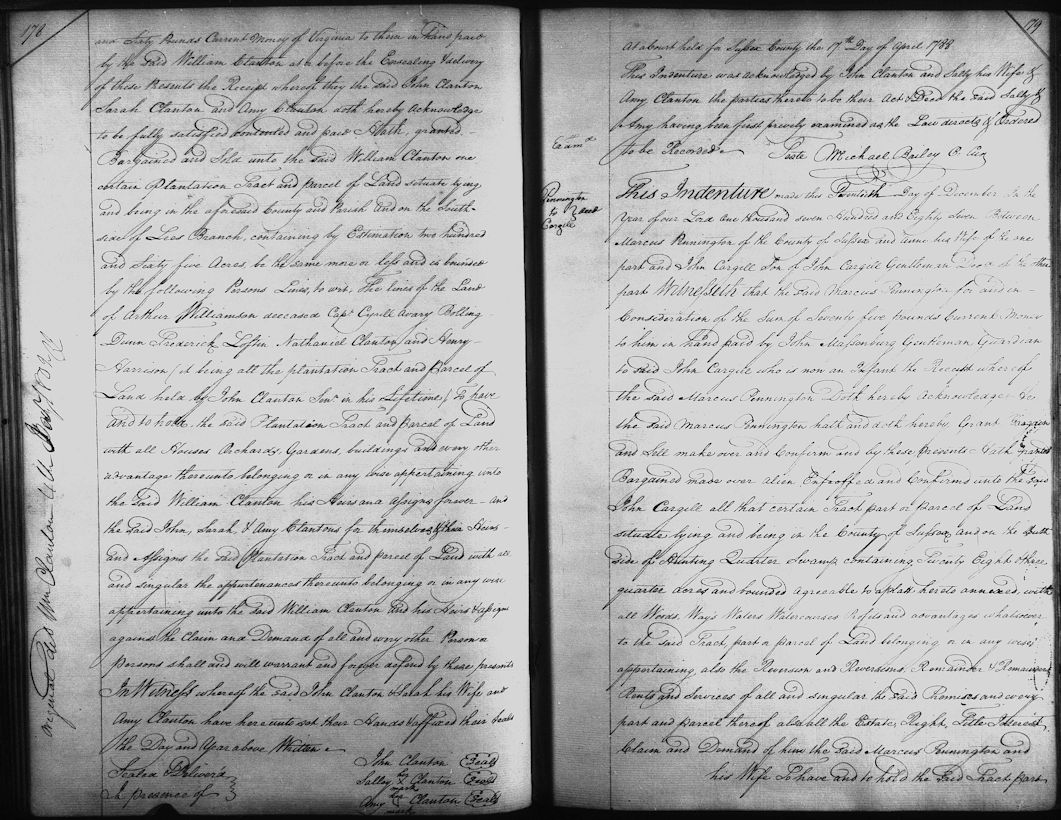 178
and Sixty Pounds Current Money of Virginia to them in Hand paid
by the said William Clanton at & before the Ensealing & delivery
of these Presents the Receipt whereof they the said John Clanton
Sarah Clanton and Amy Clanton doth hereby acknowledge
to be fully satisfied contented and paid Hath, granted,
Bargained and Sold unto the said William Clanton one
certain Plantation Tract and parcel of Land situate lying
and being in the aforesaid County and Parish and on the South
side of Lees Branch, containing by Estimation two hundred
and Sixty five Acres, be the same more or less and is bounded
by the following Persons Lines, to wit, The lines of the Land
of Arthur Williamson deceased Capt. Cyrill Avary Bolling
Dunn Frederick Loftin Nathaniel Clanton and Henry
Harrison (it being all the plantation Tract and Parcel of
Land held by John Clanton Senr. in his Lifetime) To have
and to hold the said Plantation Tract and parcel of Land
with all Houses Orchards, Gardens, buildings and every other
advantage thereunto belonging or in any wise appertaining unto
the said William Clanton his Heirs and Assigns forever and
the said John, Sarah, & Amy Clantons for themselves & their Heirs
and Assigns the said Plantation Tract and parcel of Land with all
and singular the appurtenances thereunto belonging or in any wise
appertaining unto the said William Clanton and his Heirs & assigns
against the Claim and Demand of all and every other Person or
Persons shall and will warrant and forever defend by these presents
In Witness whereof the said John Clanton & Sarah his Wife and
Amy Clanton have hereunto set their Hands & affixed their Seals
the Day and Year above Written
Sealed & Deliver'd
In presence of
John Clanton (Seal)
Salley her X mark Clanton (Seal)
Amy her X mark Clanton (Seal)
original deld Wm Clanton
179
At a Court held for Sussex County the 17th Day of April 1788
This Indenture was acknowledged by John Clanton and Sally his Wife &
Amy Clanton the parties thereto to be their Act & Deed the said Sally &
Amy having been first privily examined as the Law directs & Ordered
to be Recorded
Teste Michael Bailey C. Cur
Examd
Pennington
to Deed
Cargill
This Indenture made this Twentieth Day of December In the
Year of our Lord One thousand seven Hundred and Eighty Seven Between
Marcus Pennington of the County of Sussex and Anne his Wife of the one
part and John Cargill Son of John Cargill Gentleman Decd of the other
part Witnesseth that the said Marcus Pennington for and in
Consideration of the Sum of Seventy five pounds Current Money
to him in hand paid by John Massenburg Gentleman Guardian
to said John Cargill who is now an Infant the Receipt whereof
the said Marcus Pennington Doth hereby acknowledge He
the said Marcus Pennington hath and doth hereby Grant Bargain
and Sell make over and Confirm and by these presents Hath granted
Bargained made over alien Enfeoffed and Confirms unto the said
John Cargill all that certain Tract part or parcel of Land
situate lying and being in the County of Sussex and on the South
Side of Hunting Quarter Swamp containing Twenty Eight & three
quarter Acres and bounded agreeable to a platt hereto annexed, with
all Woods, Ways Waters Watercourses Profits and advantages whatsoever
to the said Tract, part or parcel of Land belonging or in any wise
appertaining also the Reversion and Reversions, Remainder & Remainders
Rents and Services of all and singular the said Premises and every
part and parcel thereof also all the Estate, Right, Title Interest
Claim and Demand of him the said Marcus Pennington and
his Wife To have and to hold the said Tract part